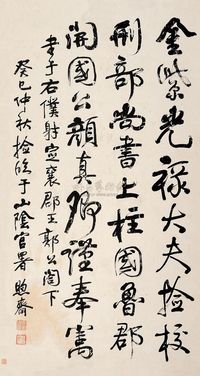 金紫光禄大夫检校
刑部尚書上柱國魯郡
開國公顔真卿謹奉書
書于右僕射定襄郡王郭公閣下
癸巳仲秋撿臨于山陰官署 煦齋